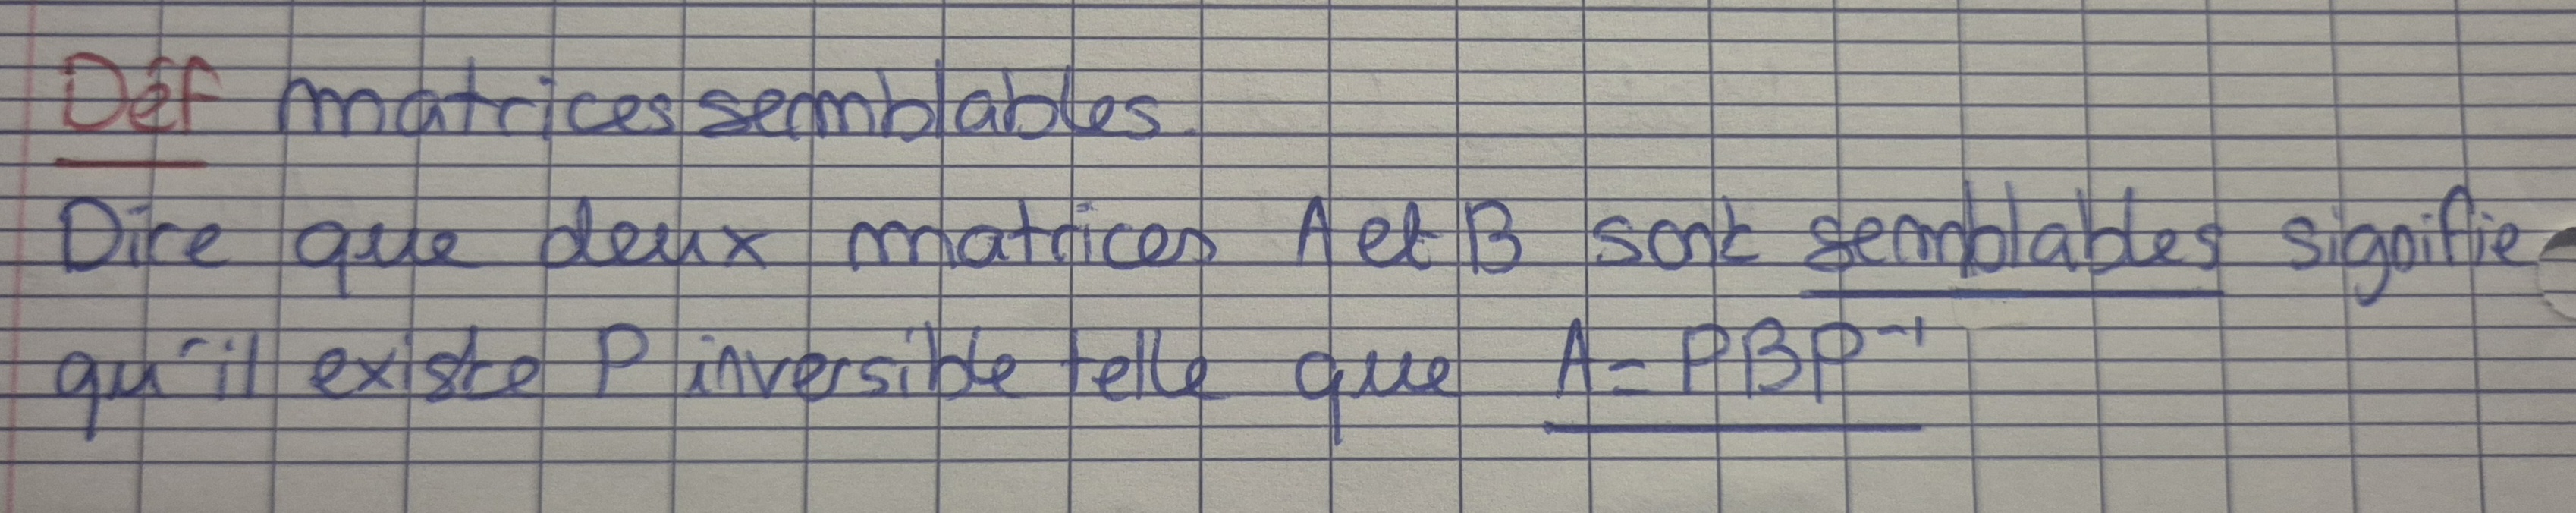 Déf matrices semblables.
Dire que deux matrices A et B sont semblables signifie
qu'il existe P inversible telle que A = PBP⁻¹